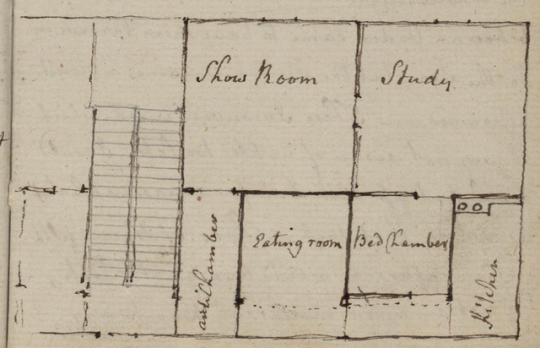 Show Room
Study
antiChamber
Eating room
Bed Chamber
Kitchen